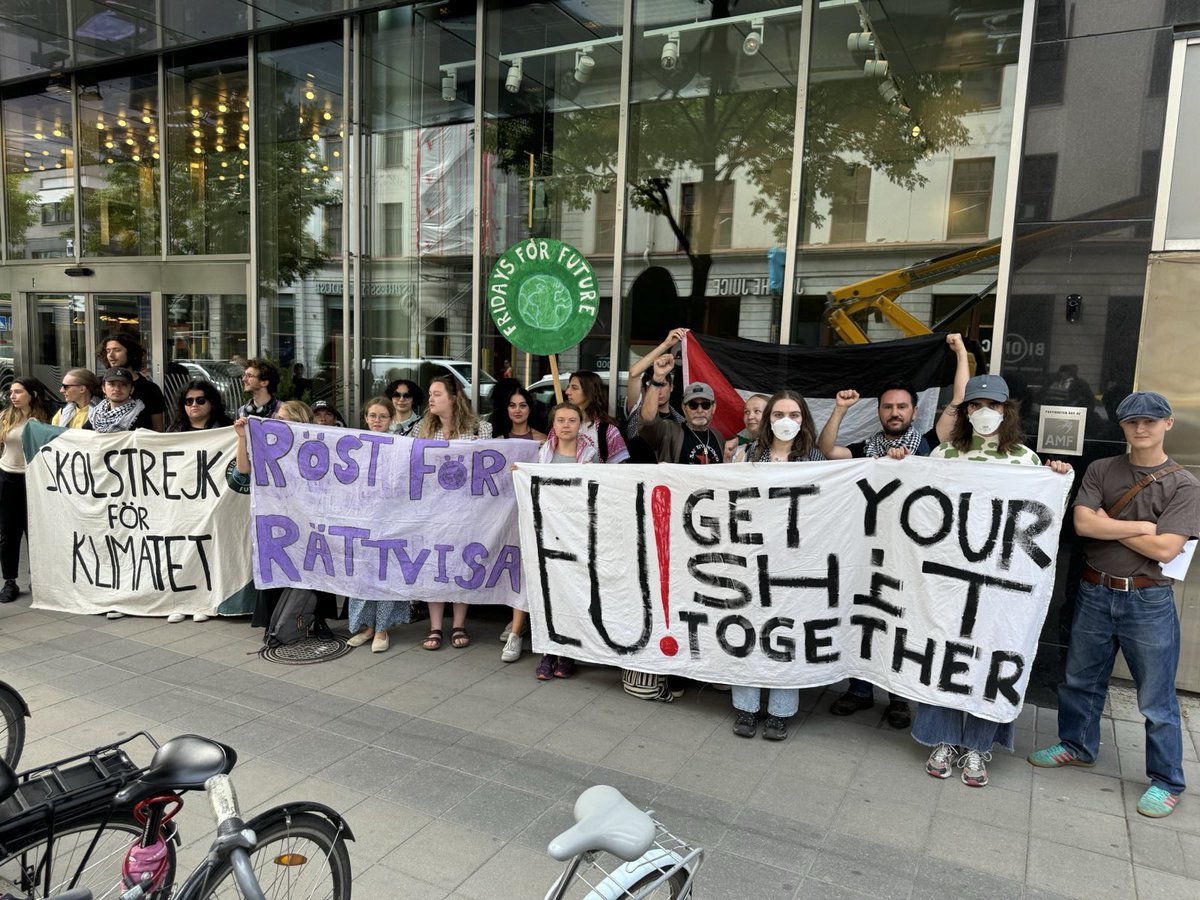 FRIDAYS FOR FUTURE
SKOLSTREJK
FÖR
KLIMATET
RÖST FÖR
RÄTTVISA
EU!
GET YOUR
SHIT
TOGETHER
AMF